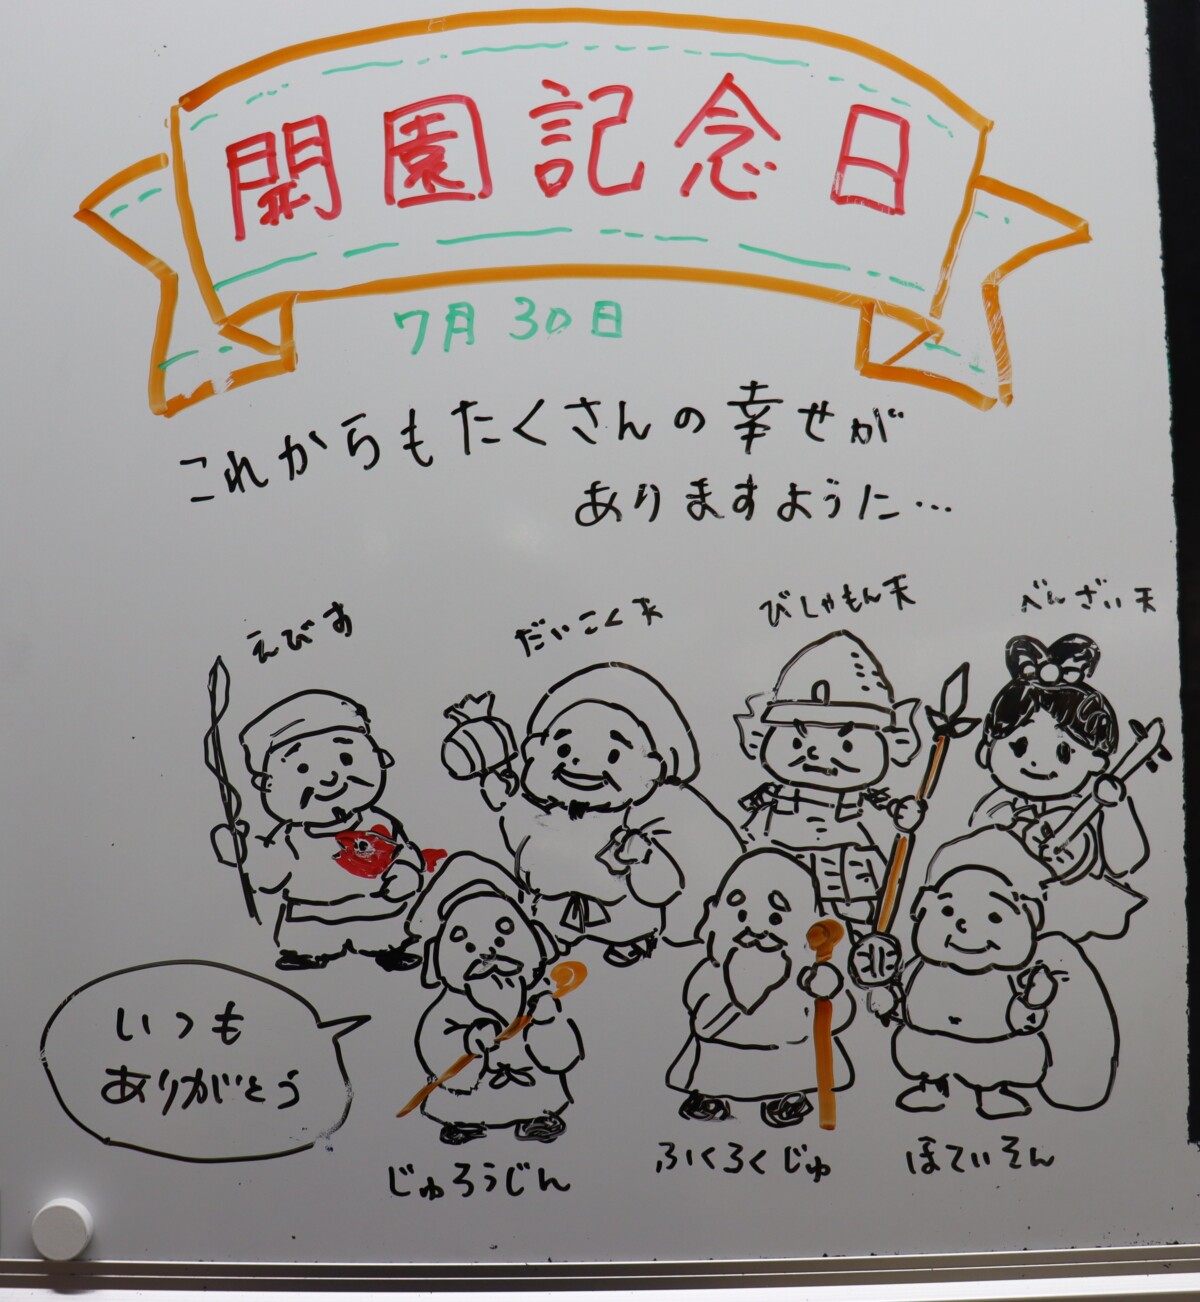 開園記念日
7月30日
これからもたくさんの幸せが
ありますように…
えびす
だいこく天
びしゃもん天
べんざい天
いつも
ありがとう
じゅろうじん
ふくろくじゅ
ほていそん